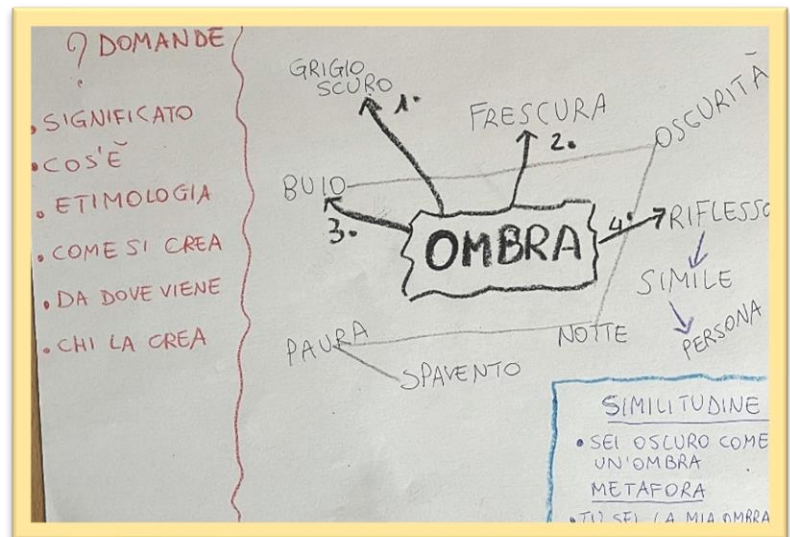 ? DOMANDE
• SIGNIFICATO
• COS'È
• ETIMOLOGIA
• COME SI CREA
• DA DOVE VIENE
• CHI LA CREA
GRIGIO
SCURO
1.
FRESCURA
2.
OSCURITÀ
BUIO
3.
OMBRA
4.
RIFLESSO
SIMILE
PERSONA
PAURA
SPAVENTO
NOTTE
SIMILITUDINE
• SEI OSCURO COME
UN'OMBRA
METAFORA
• TU SEI LA MIA OMBRA